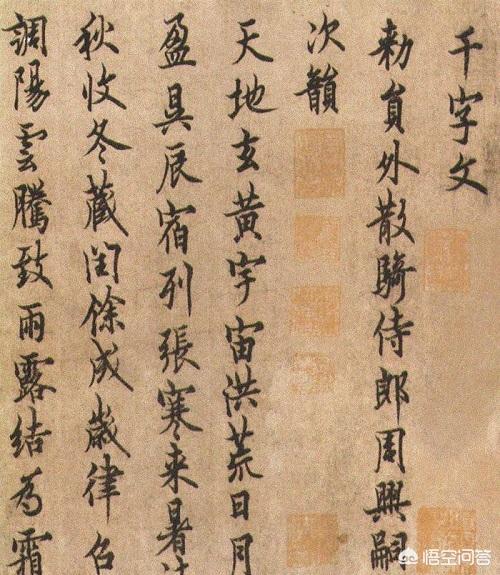 千字文
勑員外散騎侍郎周興嗣
次韻
天地玄黃宇宙洪荒日月
盈昃辰宿列張寒来暑
秋收冬藏閏餘成歲律召
調陽雲騰致雨露結為霜
悟空问答